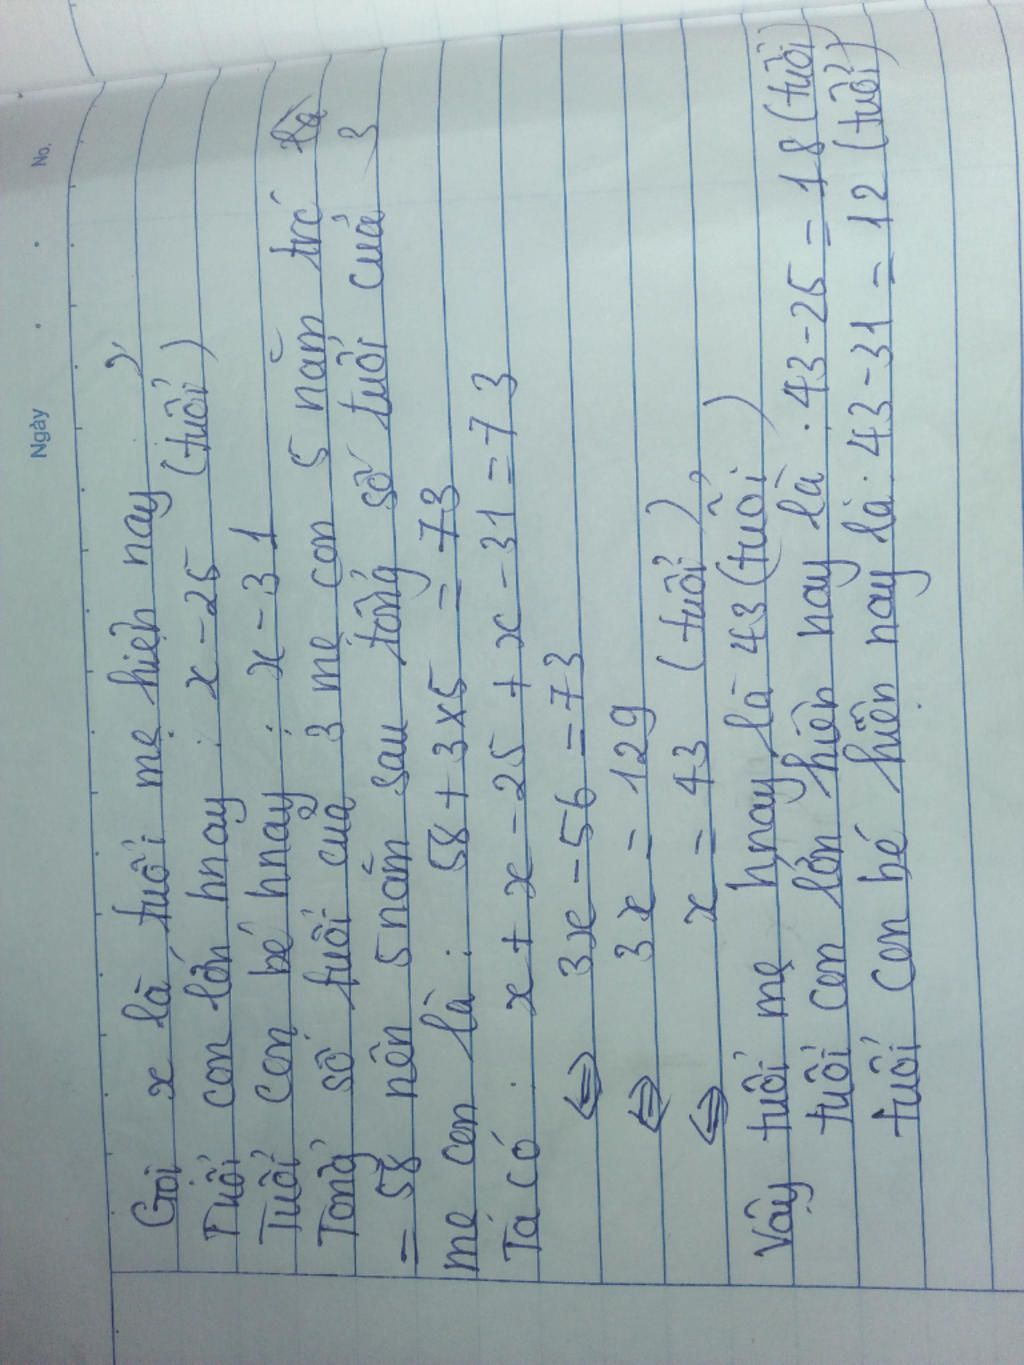 Ngày . . No.
Gọi x là tuổi mẹ hiện nay
Tuổi con lớn hnay : x - 25 (tuổi)
Tuổi con bé hnay : x - 31
Tổng số tuổi của 3 mẹ con 5 năm trc là
= 58 nên 5 năm sau tổng số tuổi của 3
mẹ con là : 58 + 3x5 = 73
Ta có : x + x - 25 + x - 31 = 73
⇔ 3x - 56 = 73
⇔ 3x = 129
⇔ x = 43 (tuổi)
Vậy tuổi mẹ hnay là 43 (tuổi)
tuổi con lớn hiện nay là : 43 - 25 = 18 (tuổi)
tuổi con bé hiện nay là : 43 - 31 = 12 (tuổi)